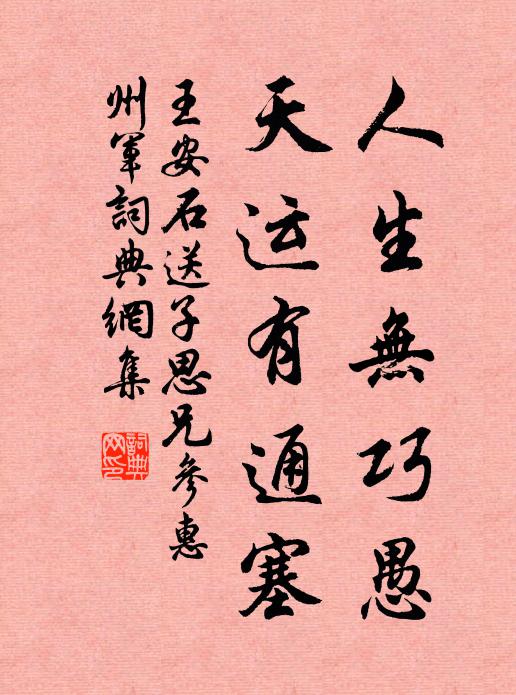 人生無巧愚
天运有通塞
王安石送子思兄參惠
州軍詞典網集
詞典
网印